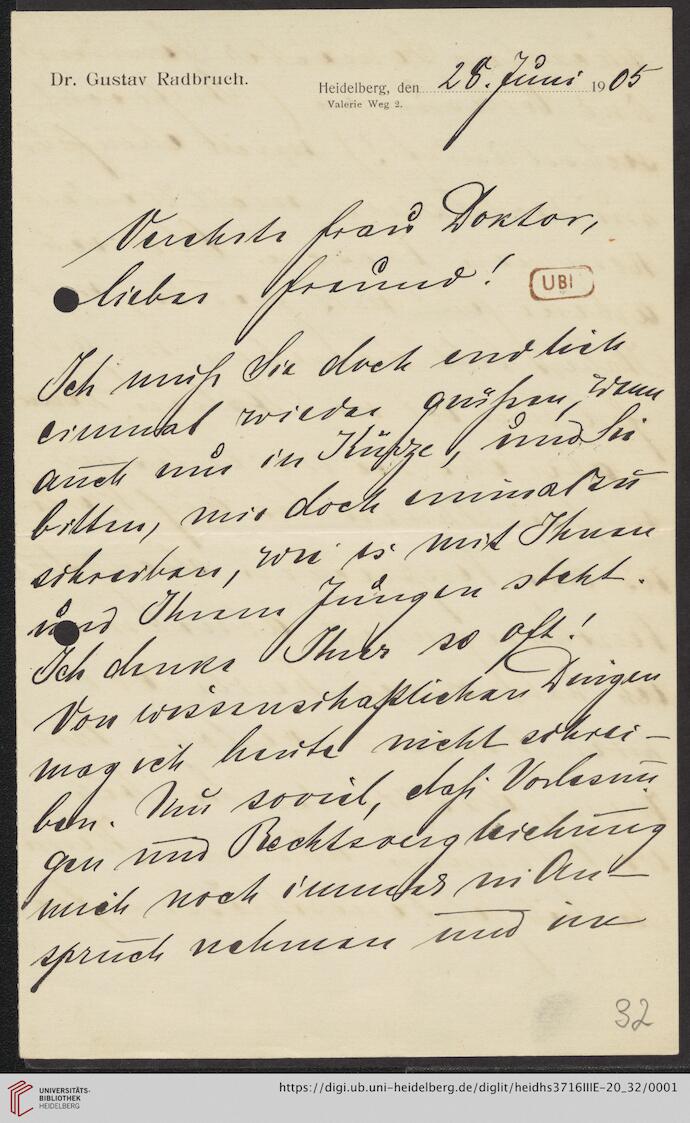 Dr. Gustav Radbruch.
Heidelberg, den 28. Juni 1905
Valerie Weg 2.
Verehrte Frau Doktor,
lieber Freund!
UBI
Ich muß Sie doch endlich
einmal wieder grüßen, wenn
auch nur in Kürze, und Sie
bitten, mir doch einmal zu
schreiben, wie es mit Ihnen
und Ihrem Jungen steht.
Ich denke Ihrer so oft!
Von wissenschaftlichen Dingen
mag ich heute nicht schrei-
ben. Nur soviel, daß Vorlesun
gen und Rechtsvergleichung
mich noch immer in An-
spruch nehmen und im
32
UNIVERSITÄTS-
BIBLIOTHEK
HEIDELBERG
https://digi.ub.uni-heidelberg.de/diglit/heidhs3716IIIE-20_32/0001